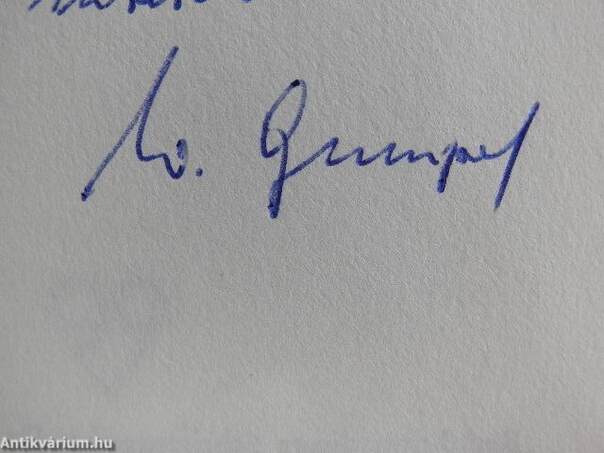 W. Gumpel
Antikvárium.hu